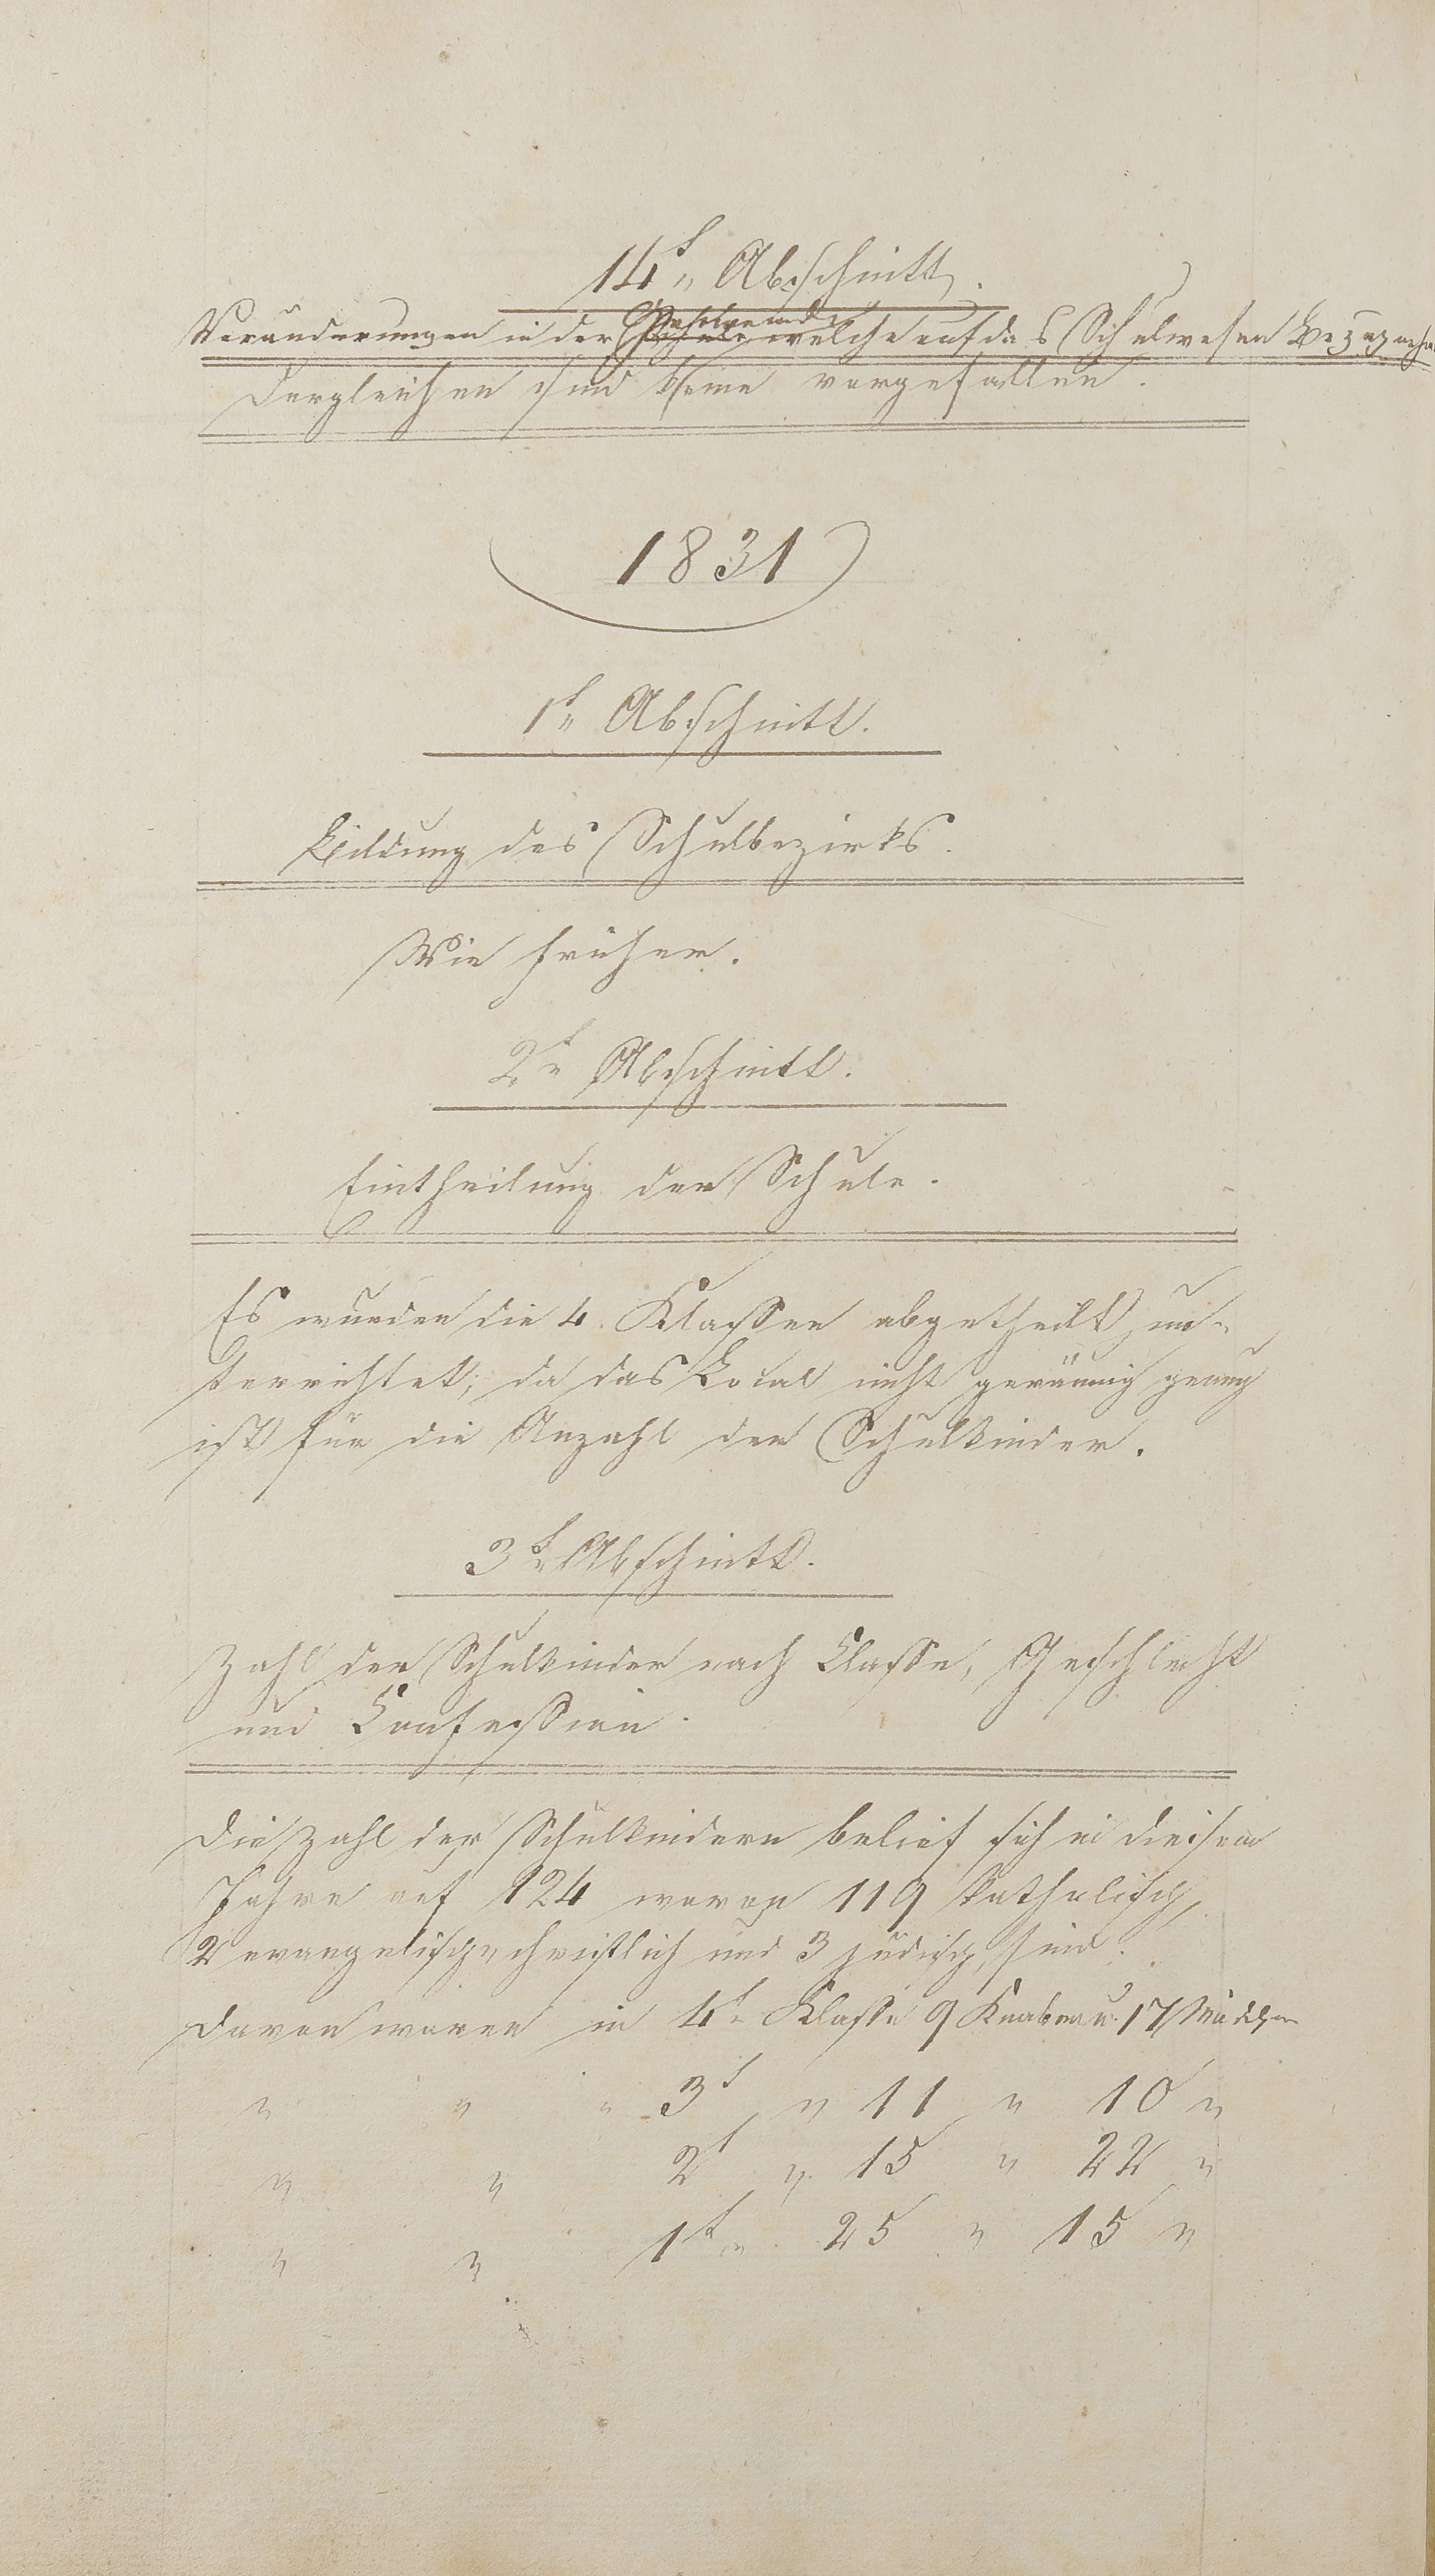 14t„ Abschnitt.
Veränderungen in der Schulgemeinde, welche auf das Schulwesen Bezug
Dergleichen sind keine vorgefallen.
1831
1t„ Abschnitt.
Bildung des Schulbezirks.
Wie früher.
2t„ Abschnitt.
Eintheilung der Schule.
Es wurden die 4. Klassen abgetheilt un-
terrichtet; da das Local nicht geräumig genug
ist für die Anzahl der Schulkinder.
3t„ Abschnitt.
Zahl der Schulkinder nach Classe, Geschlecht
und Confession.
Die Zahl der Schulkindern belief sich in diesem
Jahre auf 124 wovon 119 katholisch,
2 evangelisch christlich und 3 jüdisch, sind.
Davon waren in 4t„ Klasse 9 Knaben u. 17 Mädchen
„ „ „ 3t „ 11 „ 10 „
„ „ 2t „ 15 „ 22 „
„ „ 1t „ 25 „ 15 „